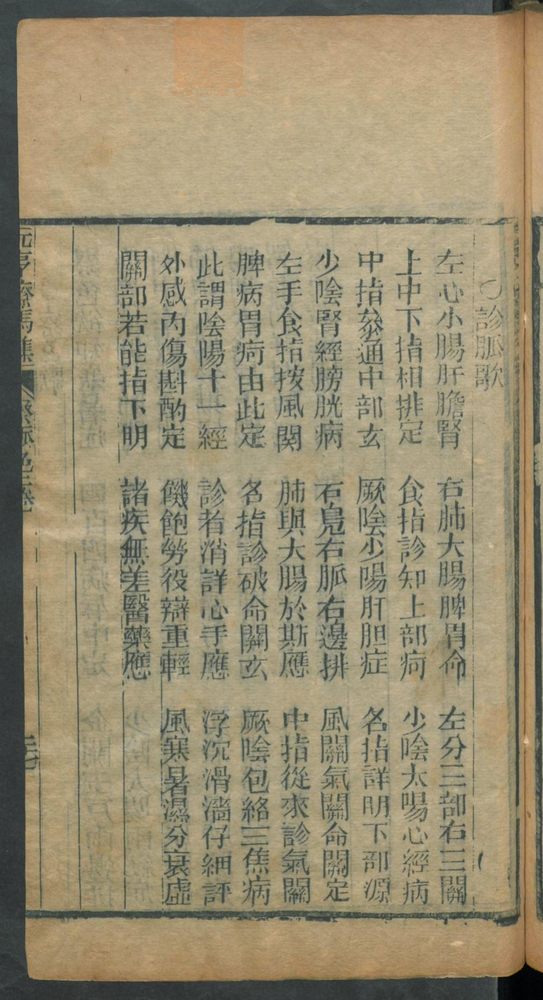 ○診脈歌
左心小腸肝膽腎　右肺大腸脾胃命　左分三部右三關
上中下指相排定　食指診知上部疴　少陰太陽心經病
中指叅通中部玄　厥陰少陽肝胆症　名指詳明下部源
少陰腎經膀胱病　右鳧右脈右邊排　風關氣關命關定
左手食指按風関　肺與大腸於斯應　中指從來診氣關
脾病胃疴由此定　名指診破命關玄　厥陰包絡三焦病
此謂陰陽十一經　診者消詳心手應　浮沉滑濇仔細評
外感內傷斟酌定　饑飽勞役辯重輕　風寒暑濕分衰虛
關部若能指下明　諸疾無差醫藥應
元亨療馬集